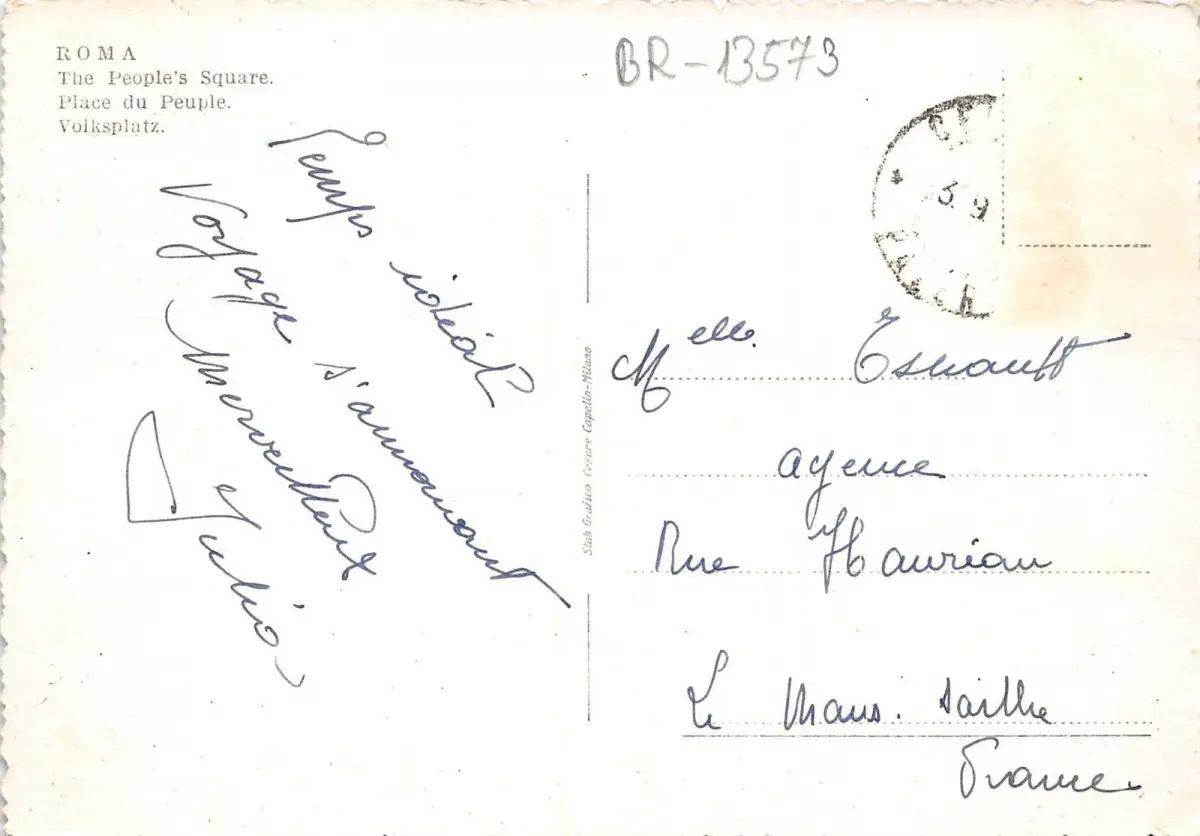 ROMA
The People's Square.
Place du Peuple.
Volksplatz.
BR-13573
Temps idéal
Voyage s'annonçant
merveilleux
Stab Grafico Cesare Capello-Milano
Melle.
agence
Rue Hauréau
Le Mans. Sarthe
France